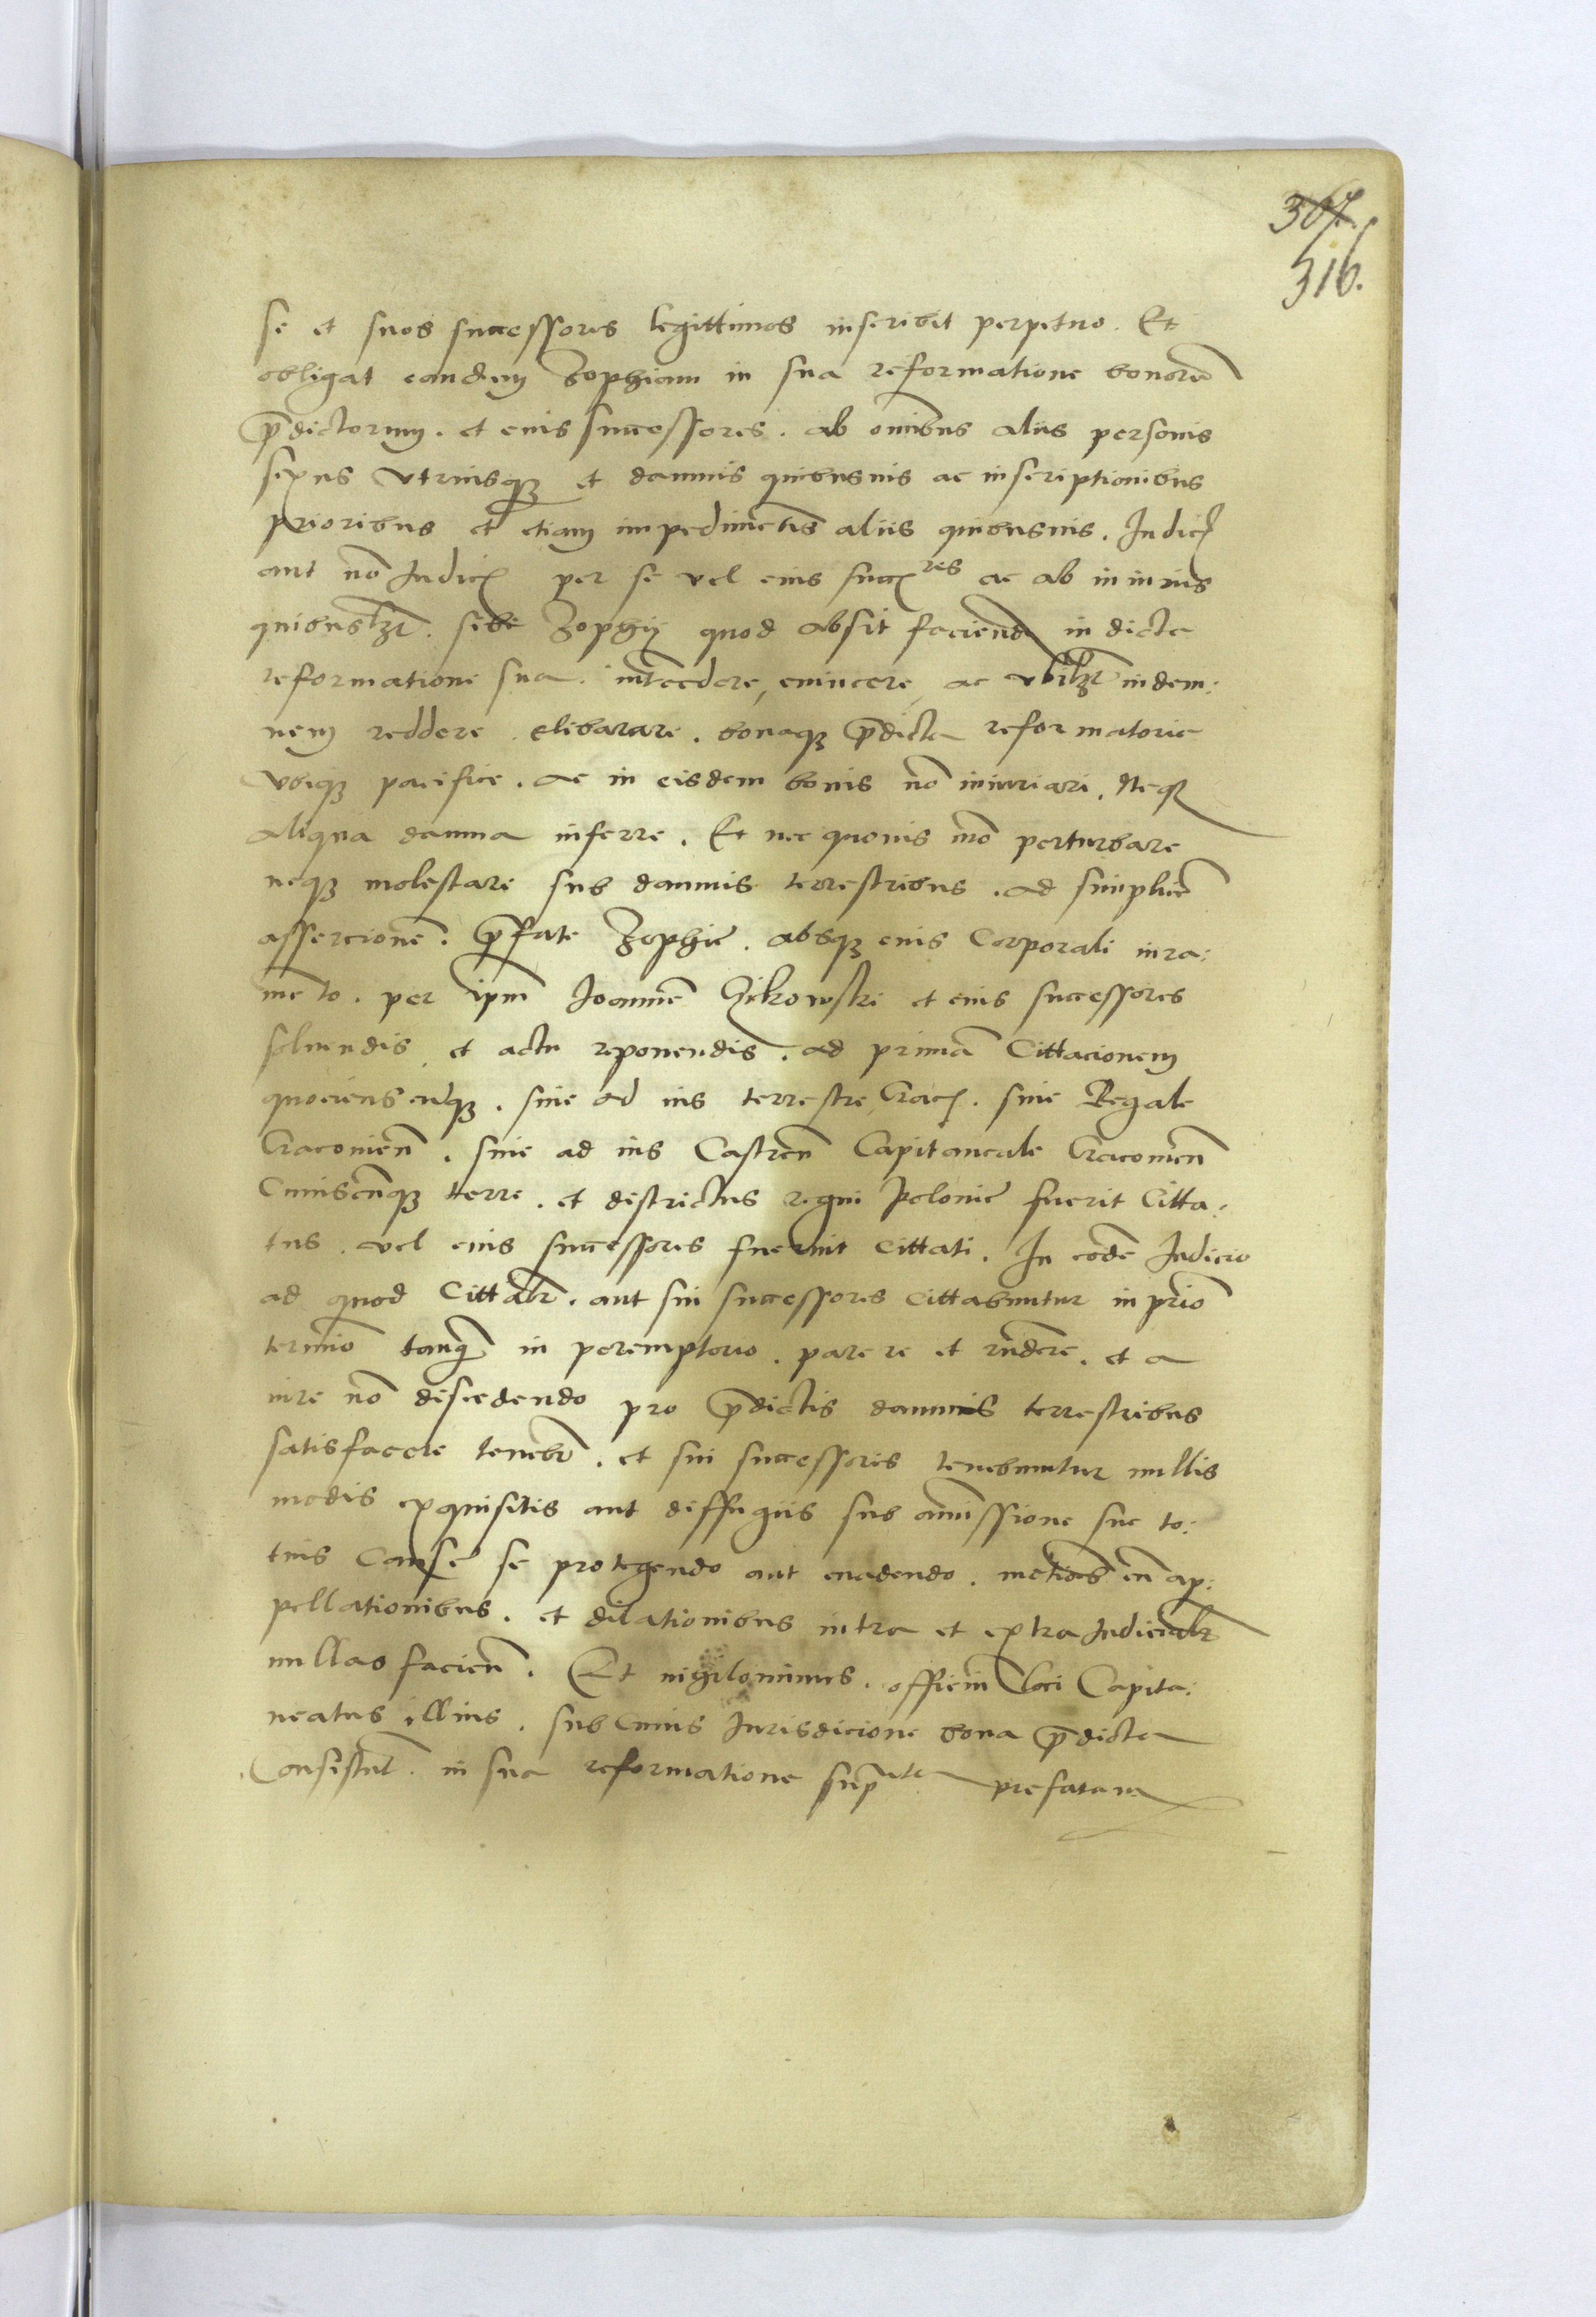 367.
316.
se et suos successores legittimos inscribit perpetuo. Et
obligat eandem Zophiam in sua reformatione bonorū
p̄dictorum. et eius successores. ab omībus aliis personis
sexus vtriusq₃ et damnis quibusuis ac inscriptionibus
prioribus et etiam impedimētis aliis quibusuis. Indicꝭ
aut nō Iudicꝭ per se vel eius succꝭres ac ab iniuriis
quibuslꝫt. sibi Zophiȩ quod absit faciend in dicta
reformatione sua. intcedere, euincere, ac vbilꝫt indem:
nem reddere elibarare. bonaq₃ p̄dicta reformatorie
vbiq₃ pacifice. ac in eisdem bonis nō iniuriari. Neq₃
aliqua damna inferre. Et nec quouis mō perturbare
neq₃ molestare sub damnis terrestribus. ad simplicē
assercionē. p̄fate Zophie. absq₃ eius Corporali iura:
mēto. per ipm̄ Ioannē et eius successores
soluendis et actu reponendis. ad primā Cittacionem
quocienscūq₃. siue ad ius terrestre Cracꝭ. siue Regale
Cracouien̄. siue ad ius Castren̄ Capitaneale Cracouien̄
Cuiuscūq₃ terre. et districtus regni Polonie fuerit Citta:
tus. vel eius successores fuerint cittati. In eodē Iudicio
ad quod Cittabr̄. aut sui successores cittabuntur in prīo
termīo tanq̄ in peremptorio. parere et rn̄dere. et a
iure nō discedendo pro p̄dictis damnis terrestribus
satisfacere tenebr̄. et sui successores tenebuntur nullis
modis exquisitis aut diffugiis sub amissione sue to:
tius Cause se protegendo aut euadendo. mōtiōes eī ap:
pellationibus. et dilationibus intra et extra Iudicialr̄
nullas facien̄. Et nigilominus. officiū loci Capita:
neatus illius. sub Cuius Iurisdicione bona p̄dicta
Consistūt. in sua reformatione prefatam